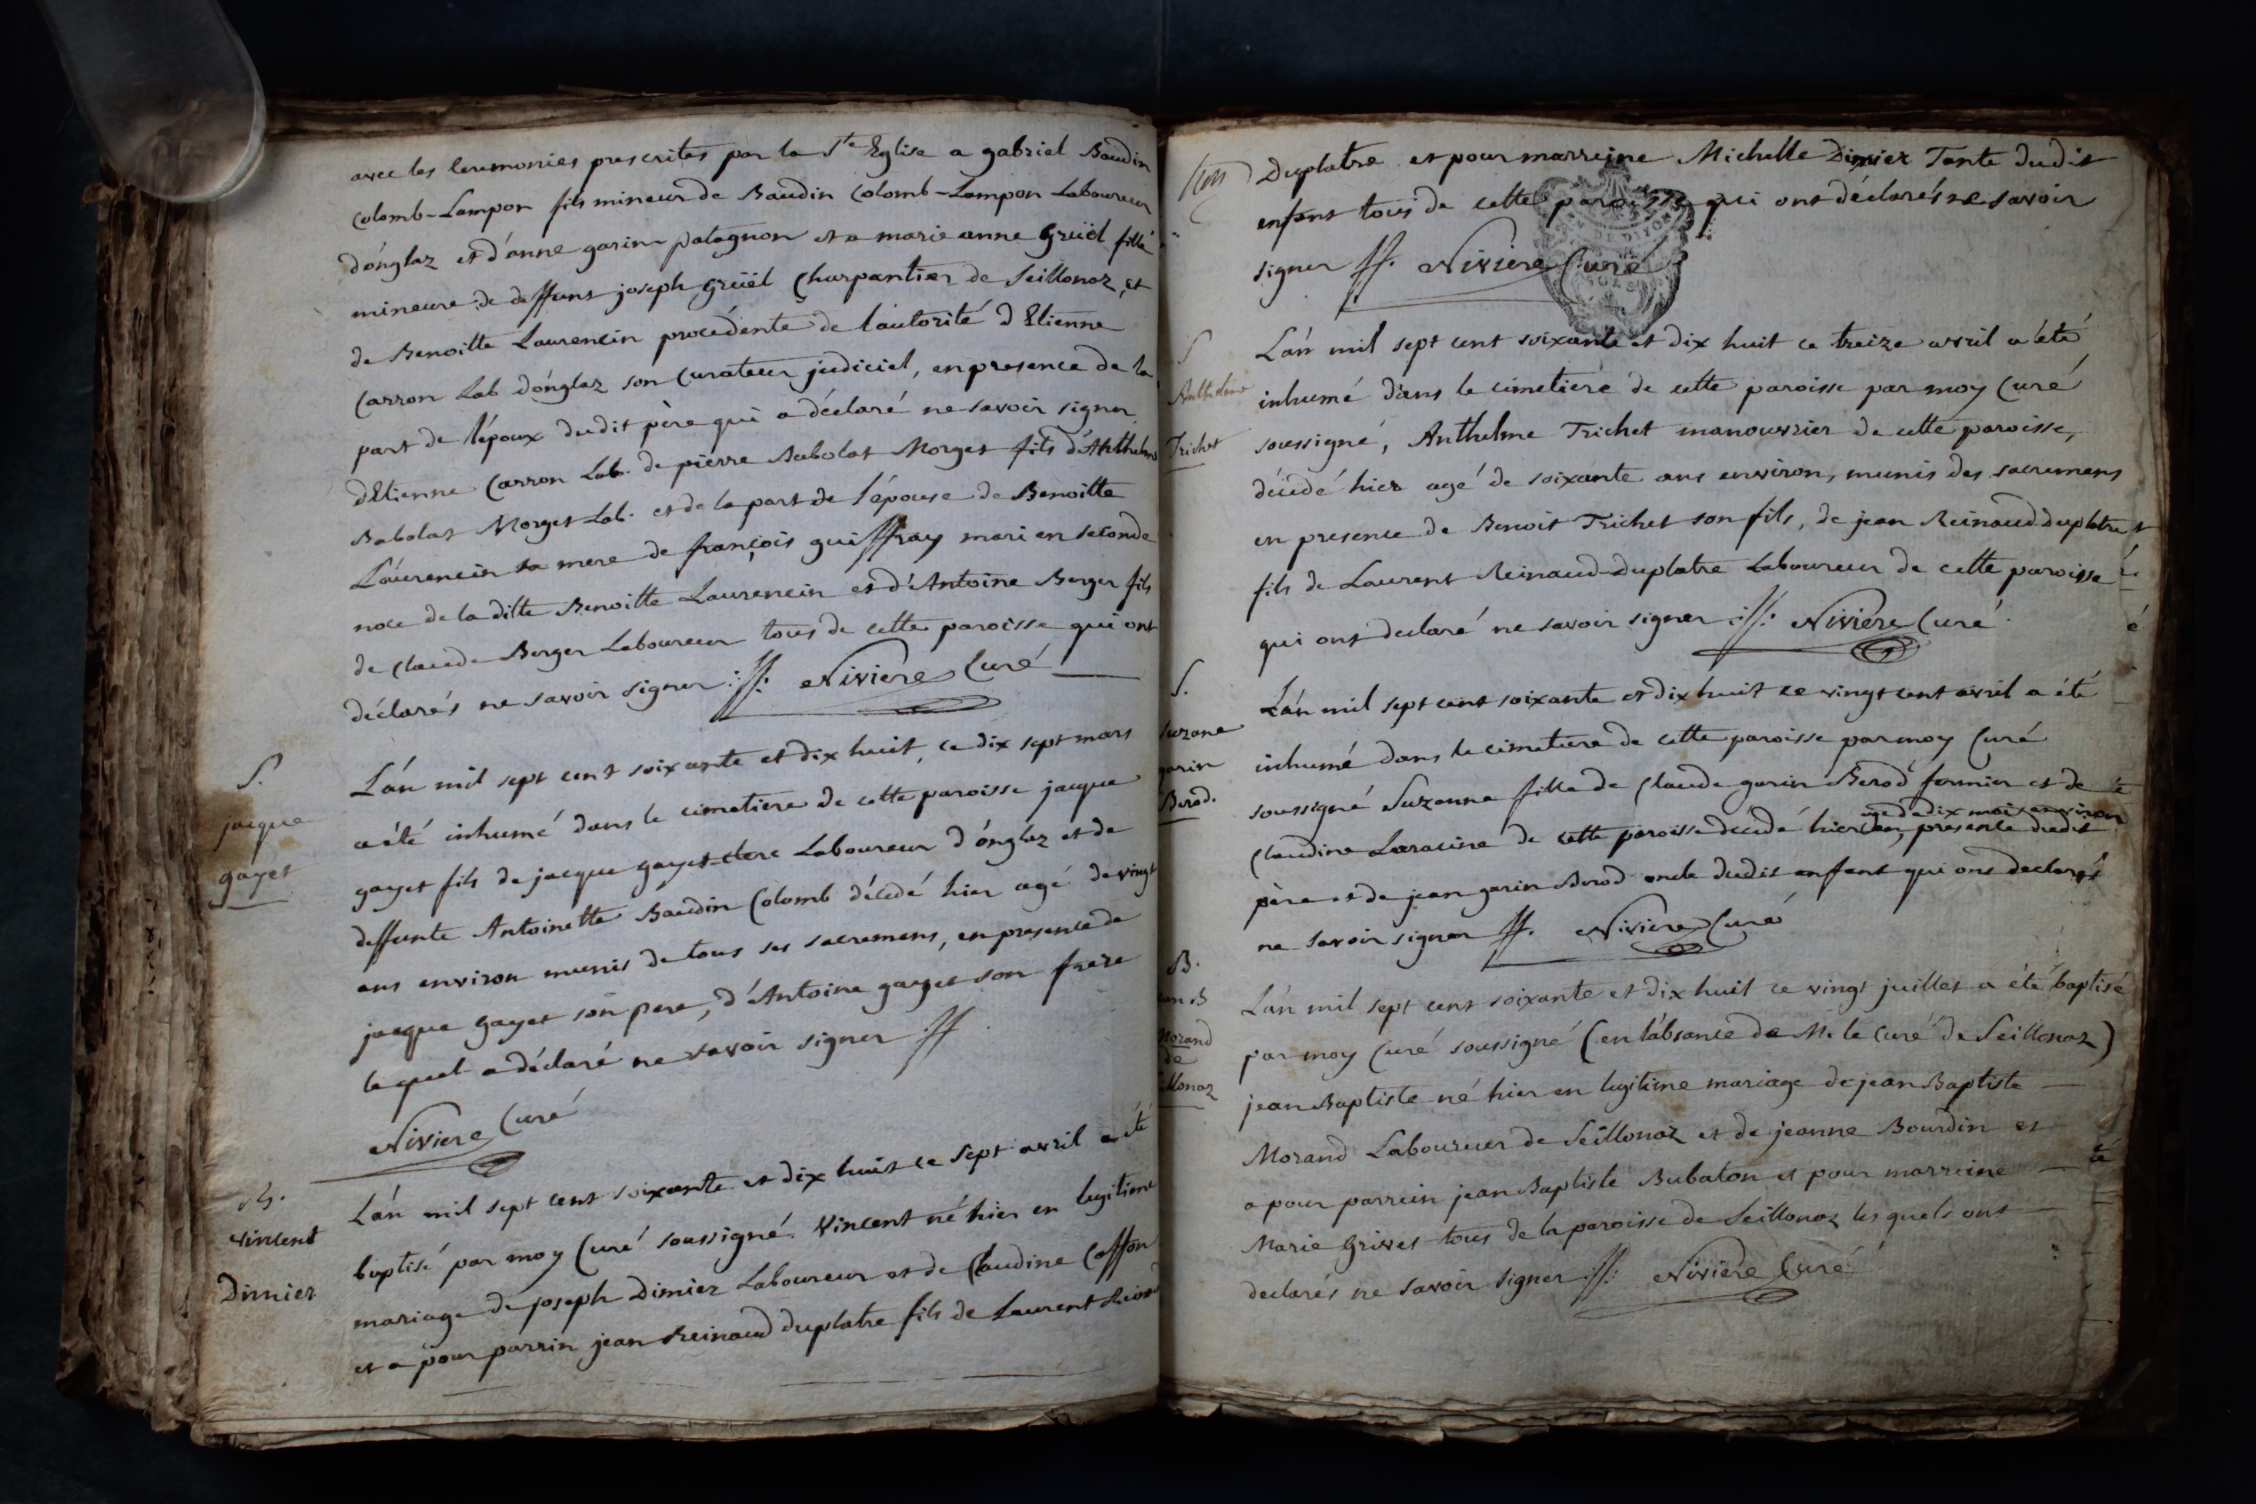 avec les ceremonies prescrites par la Ste Eglise a gabriel Baudin
Colomb-Lampon fils mineur de Baudin Colomb-Lampon Laboureur
d'onglaz et d'anne garin patagnon et a marie anne Grüel fille
mineure de deffunt joseph Grüel Charpantier de Seillonaz, et
de Benoitte Laurencin procédente de l'autorité d'Etienne
Carron Lab d'onglaz son Curateur judiciel, en presence de la
part de l'époux dudit père qui a déclaré ne savoir signer
d'Etienne Carron Lab. de pierre Babolat Morget fils d'Anthelme
Babolat Morget Lab. et de la part de l'épouse de Benoitte
Laurencin sa mere de françois guiffray mari en seconde
noce de la ditte Benoitte Laurencin et d'Antoine Berger fils
de Claude Berger Laboureur tous de cette paroisse qui ont
déclarés ne savoir signer Niviere Curé
S.
jacque
gayet
L'an mil sept cent soixante et dix huit, ce dix sept mars
a été inhumé dans le cimetiere de cette paroisse jacque
gayet fils de jacque gayet-clerc Laboureur d'onglaz et de
deffunte Antoinette Baudin Colomb décédé hier agé de vingt
ans environ munis de tous ses sacremens, en presence de
jacque gayet son pere, d'Antoine gayet son frere
lequel a déclaré ne savoir signer
Niviere Curé
B.
vincent
Dimier
L'an mil sept cent soixante et dix huit ce sept avril a été
baptisé par moy Curé soussigné Vincent né hier en legitime
mariage de joseph Dimier Laboureur et de Claudine Caffon
et a pour parrin jean Reinaud duplatre fils de Laurent
Duplatre et pour marreine Michelle Dimier Tante dudit
enfant tous de cette paroisse qui ont déclarés ne savoir
signer Niviere Curé
S
Anthelme
Trichet
L'an mil sept cent soixante et dix huit ce treize avril a été
inhumé dans le cimetiere de cette paroisse par moy Curé
soussigné, Anthelme Trichet manouvrier de cette paroisse,
décédé hier agé de soixante ans environ, munis des sacremens
en presence de Benoit Trichet son fils, de jean Reinaud duplatre
fils de Laurent Reinaud-duplatre Laboureur de cette paroisse
qui ont declaré ne savoir signer Niviere Curé
S.
suzane
garin
Berod.
L'an mil sept cent soixante et dix huit ce vingt avril a été
inhumé dans le cimetiere de cette paroisse par moy Curé
soussigné Suzanne fille de Claude garin Berod fermier et de
agé de dix mois environ
Claudine Laracine de cette paroisse décédé hier en presence dudit
père et de jean garin Berod oncle dudit enfant qui ont declarés
ne savoir signer Niviere Curé
B.
jean B
Morand
de
Seillonaz
L'an mil sept cent soixante et dix huit ce vingt juillet a été baptisé
par moy Curé soussigné (en l'absance de Mr le Curé de Seillonaz)
jean Baptiste né hier en legitime mariage de jean Baptiste
Morand Laboureur de Seillonaz et de jeanne Bourdin et
a pour parrein jean Baptiste Bubaton et pour marreine
Marie Grivet tous de la paroisse de Seillonaz les quels ont
declarés ne savoir signer Niviere Curé